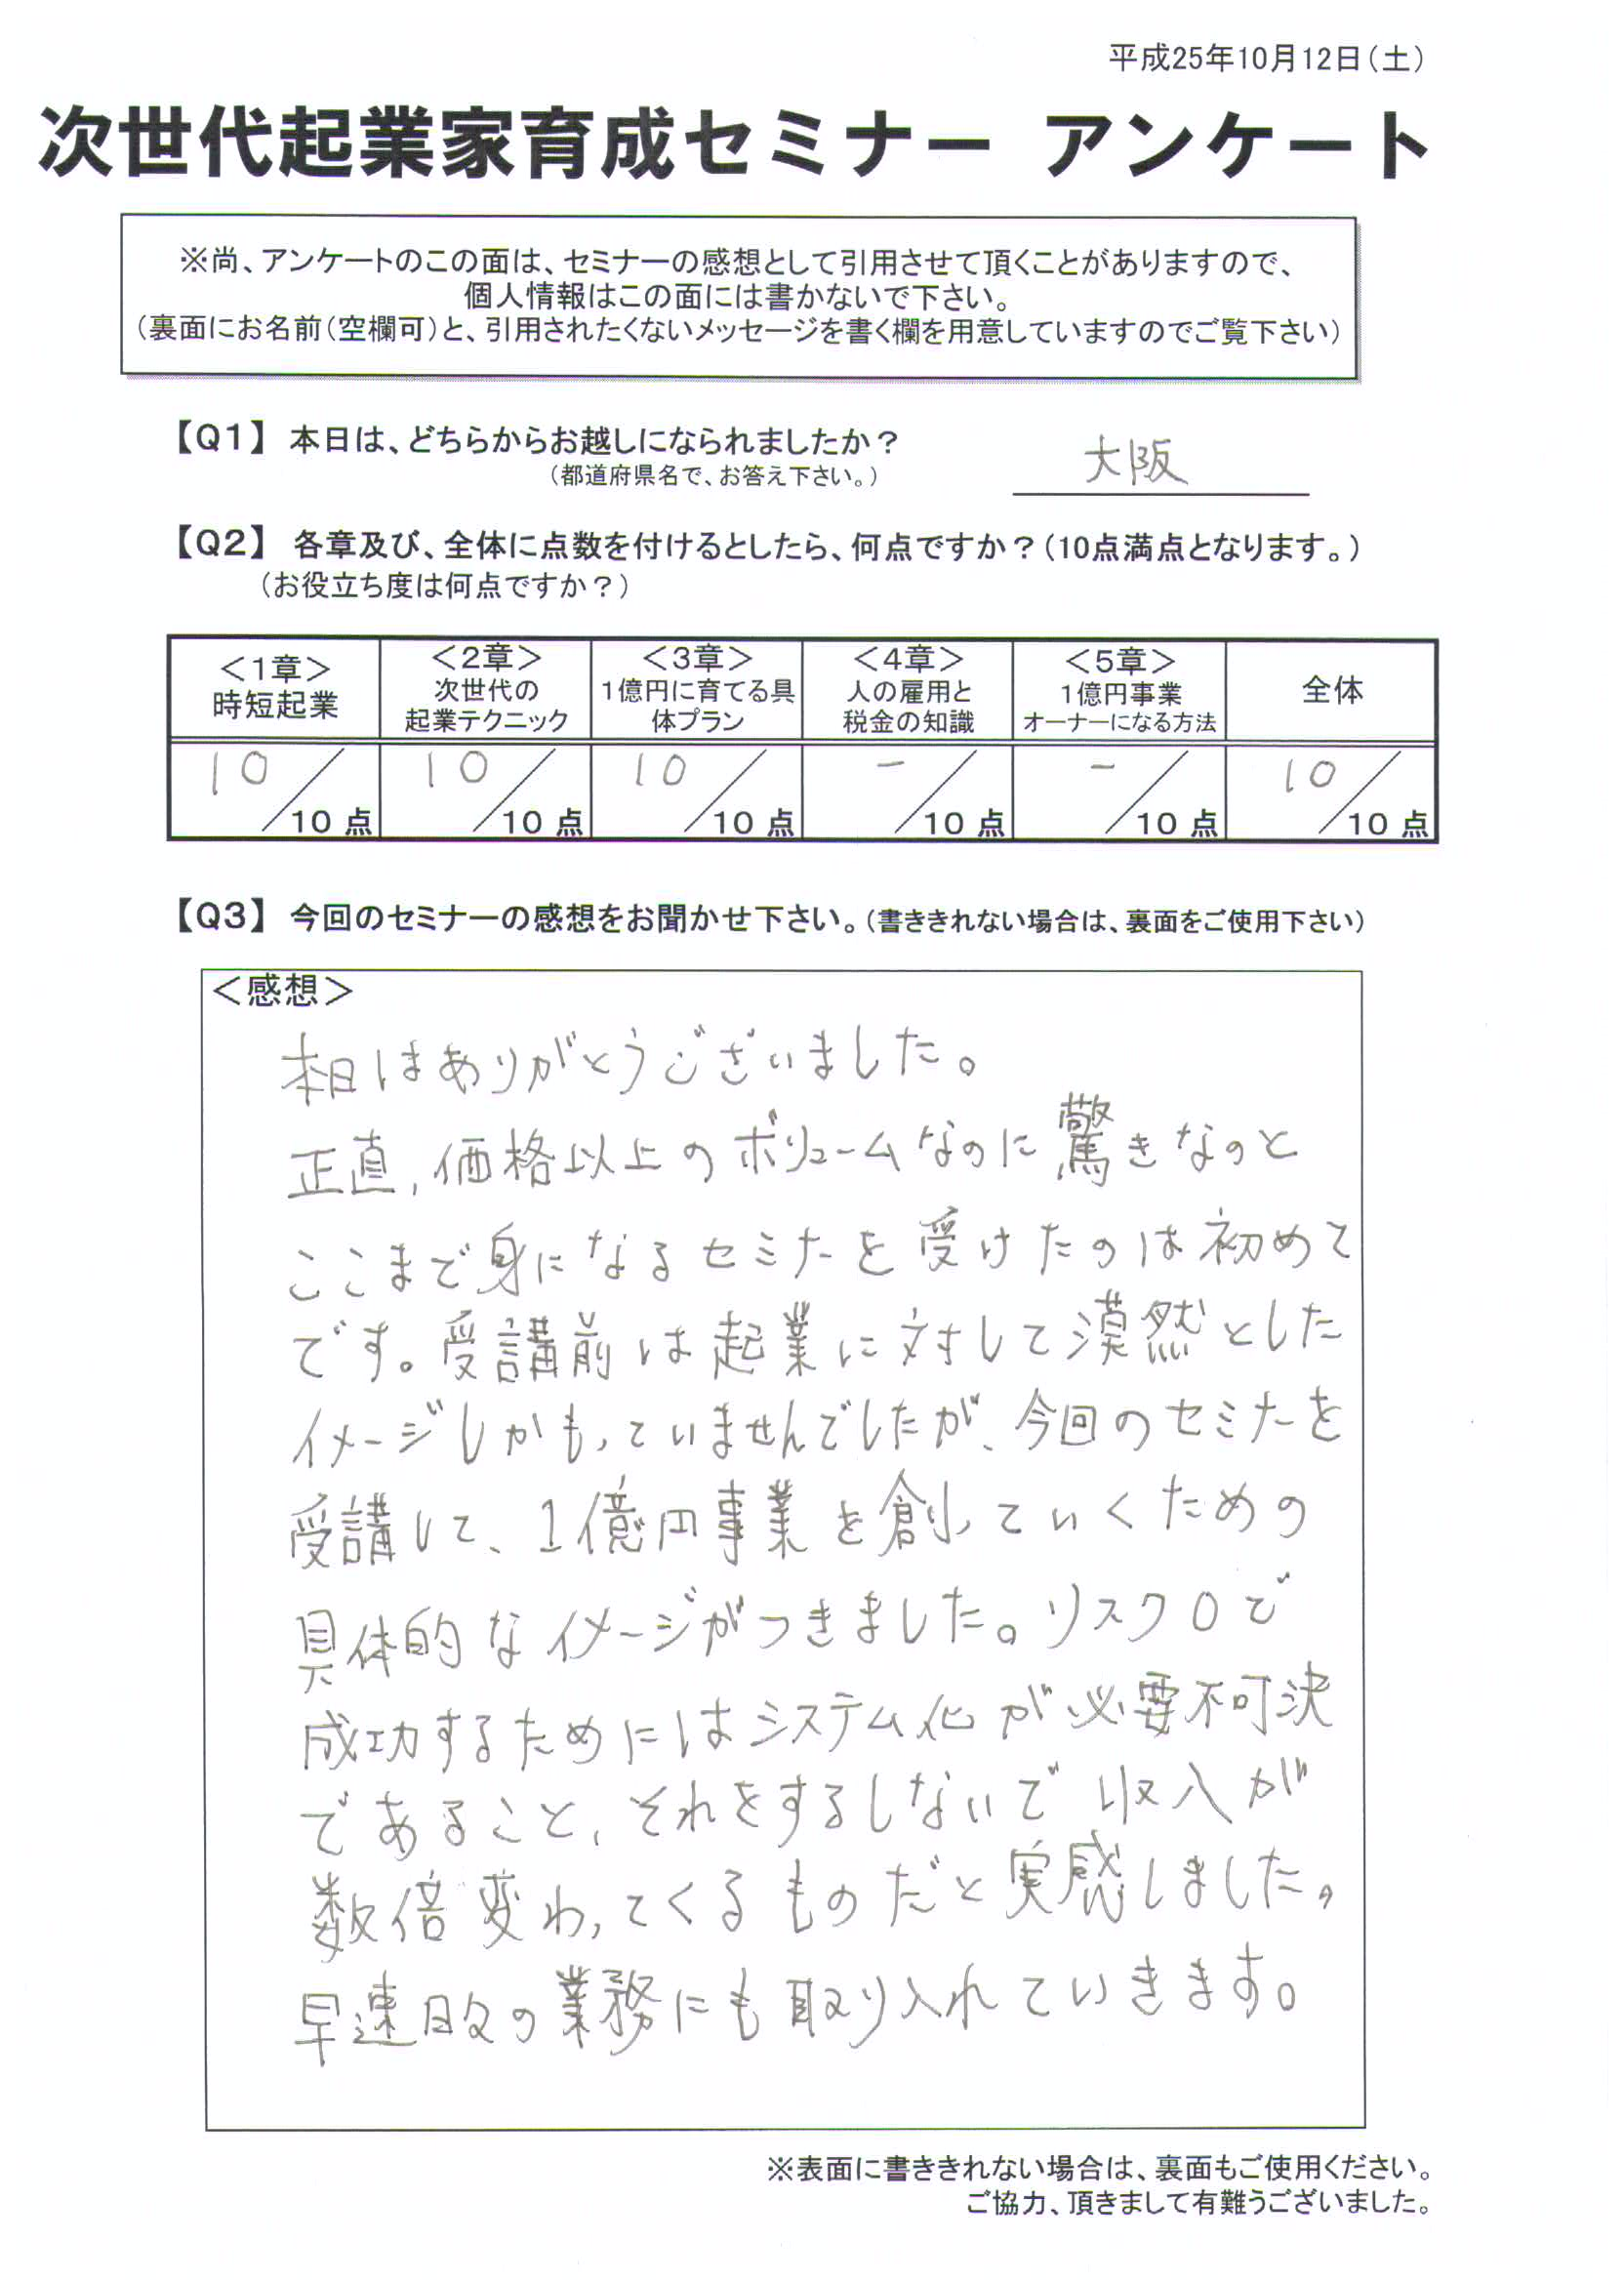 平成25年10月12日(土)
次世代起業家育成セミナー アンケート
※尚、アンケートのこの面は、セミナーの感想として引用させて頂くことがありますので、
個人情報はこの面には書かないで下さい。
(裏面にお名前(空欄可)と、引用されたくないメッセージを書く欄を用意していますのでご覧下さい)
【Q1】 本日は、どちらからお越しになられましたか?
(都道府県名で、お答え下さい。)
大阪
【Q2】 各章及び、全体に点数を付けるとしたら、何点ですか?(10点満点となります。)
(お役立ち度は何点ですか?)
<1章> 時短起業
<2章> 次世代の 起業テクニック
<3章> 1億円に育てる具体プラン
<4章> 人の雇用と 税金の知識
<5章> 1億円事業 オーナーになる方法
全体
10/10点 10/10点 10/10点 -/10点 -/10点 10/10点
【Q3】 今回のセミナーの感想をお聞かせ下さい。(書ききれない場合は、裏面をご使用下さい)
<感想>
本日はありがとうございました。
正直,価格以上のボリュームなのに驚きなのと
ここまで身になるセミナーを受けたのは初めて
です。受講前は起業に対して漠然とした
イメージしかもっていませんでしたが、今回のセミナーを
受講して、1億円事業を創っていくための
具体的なイメージがつきました。リスク0で
成功するためにはシステム化が必要不可決
であること、それをするしないで収入が
数倍変わってくるものだと実感しました。
早速日々の業務にも取り入れていきます。
※表面に書ききれない場合は、裏面もご使用ください。
ご協力、頂きまして有難うございました。